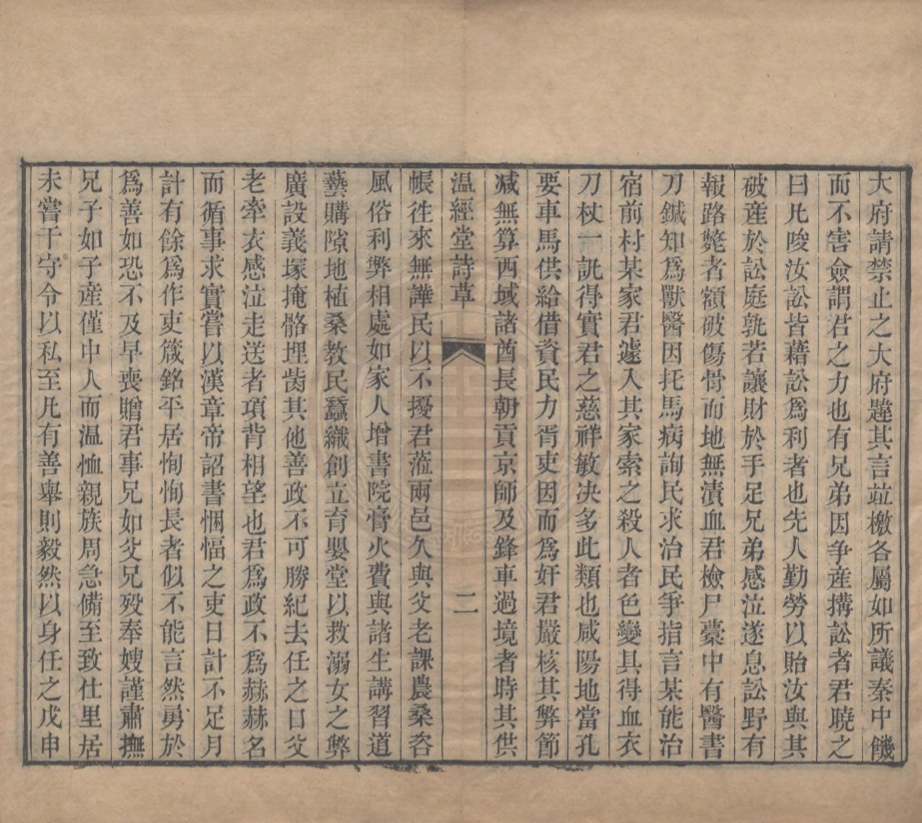 大府請禁止之大府韙其言竝檄各屬如所議秦中饑
而不害僉謂君之力也有兄弟因爭產搆訟者君曉之
曰凡唆汝訟皆藉訟爲利者也先人勤勞以貽汝與其
破產於訟庭孰若讓財於手足兄弟感泣遂息訟野有
報路斃者額破傷骨而地無漬血君檢尸橐中有醫書
刀鍼知爲獸醫因托馬病詢民求治民爭指言某能治
宿前村某家君遽入其家索之殺人者色變具得血衣
刀杖一訊得實君之慈祥敏决多此類也咸陽地當孔
要車馬供給借資民力胥吏因而爲奸君嚴核其弊節
减無算西域諸酋長朝貢京師及鋒車過境者時其供
温經堂詩草
二
帳徃來無譁民以不擾君蒞兩邑久與父老課農桑咨
風俗利弊相處如家人增書院膏火費與諸生講習道
藝購隙地植桑教民蠶織創立育嬰堂以救溺女之弊
廣設義塚掩骼埋胔其他善政不可勝紀去任之日父
老牽衣感泣走送者項背相望也君爲政不爲赫赫名
而循事求實嘗以漢章帝詔書悃愊之吏日計不足月
計有餘爲作吏箴銘平居恂恂長者似不能言然勇於
爲善如恐不及早喪贈君事兄如父兄歿奉嫂謹肅撫
兄子如子產僅中人而温恤親族周急備至致仕里居
未嘗干守令以私至凡有善舉則毅然以身任之戊申